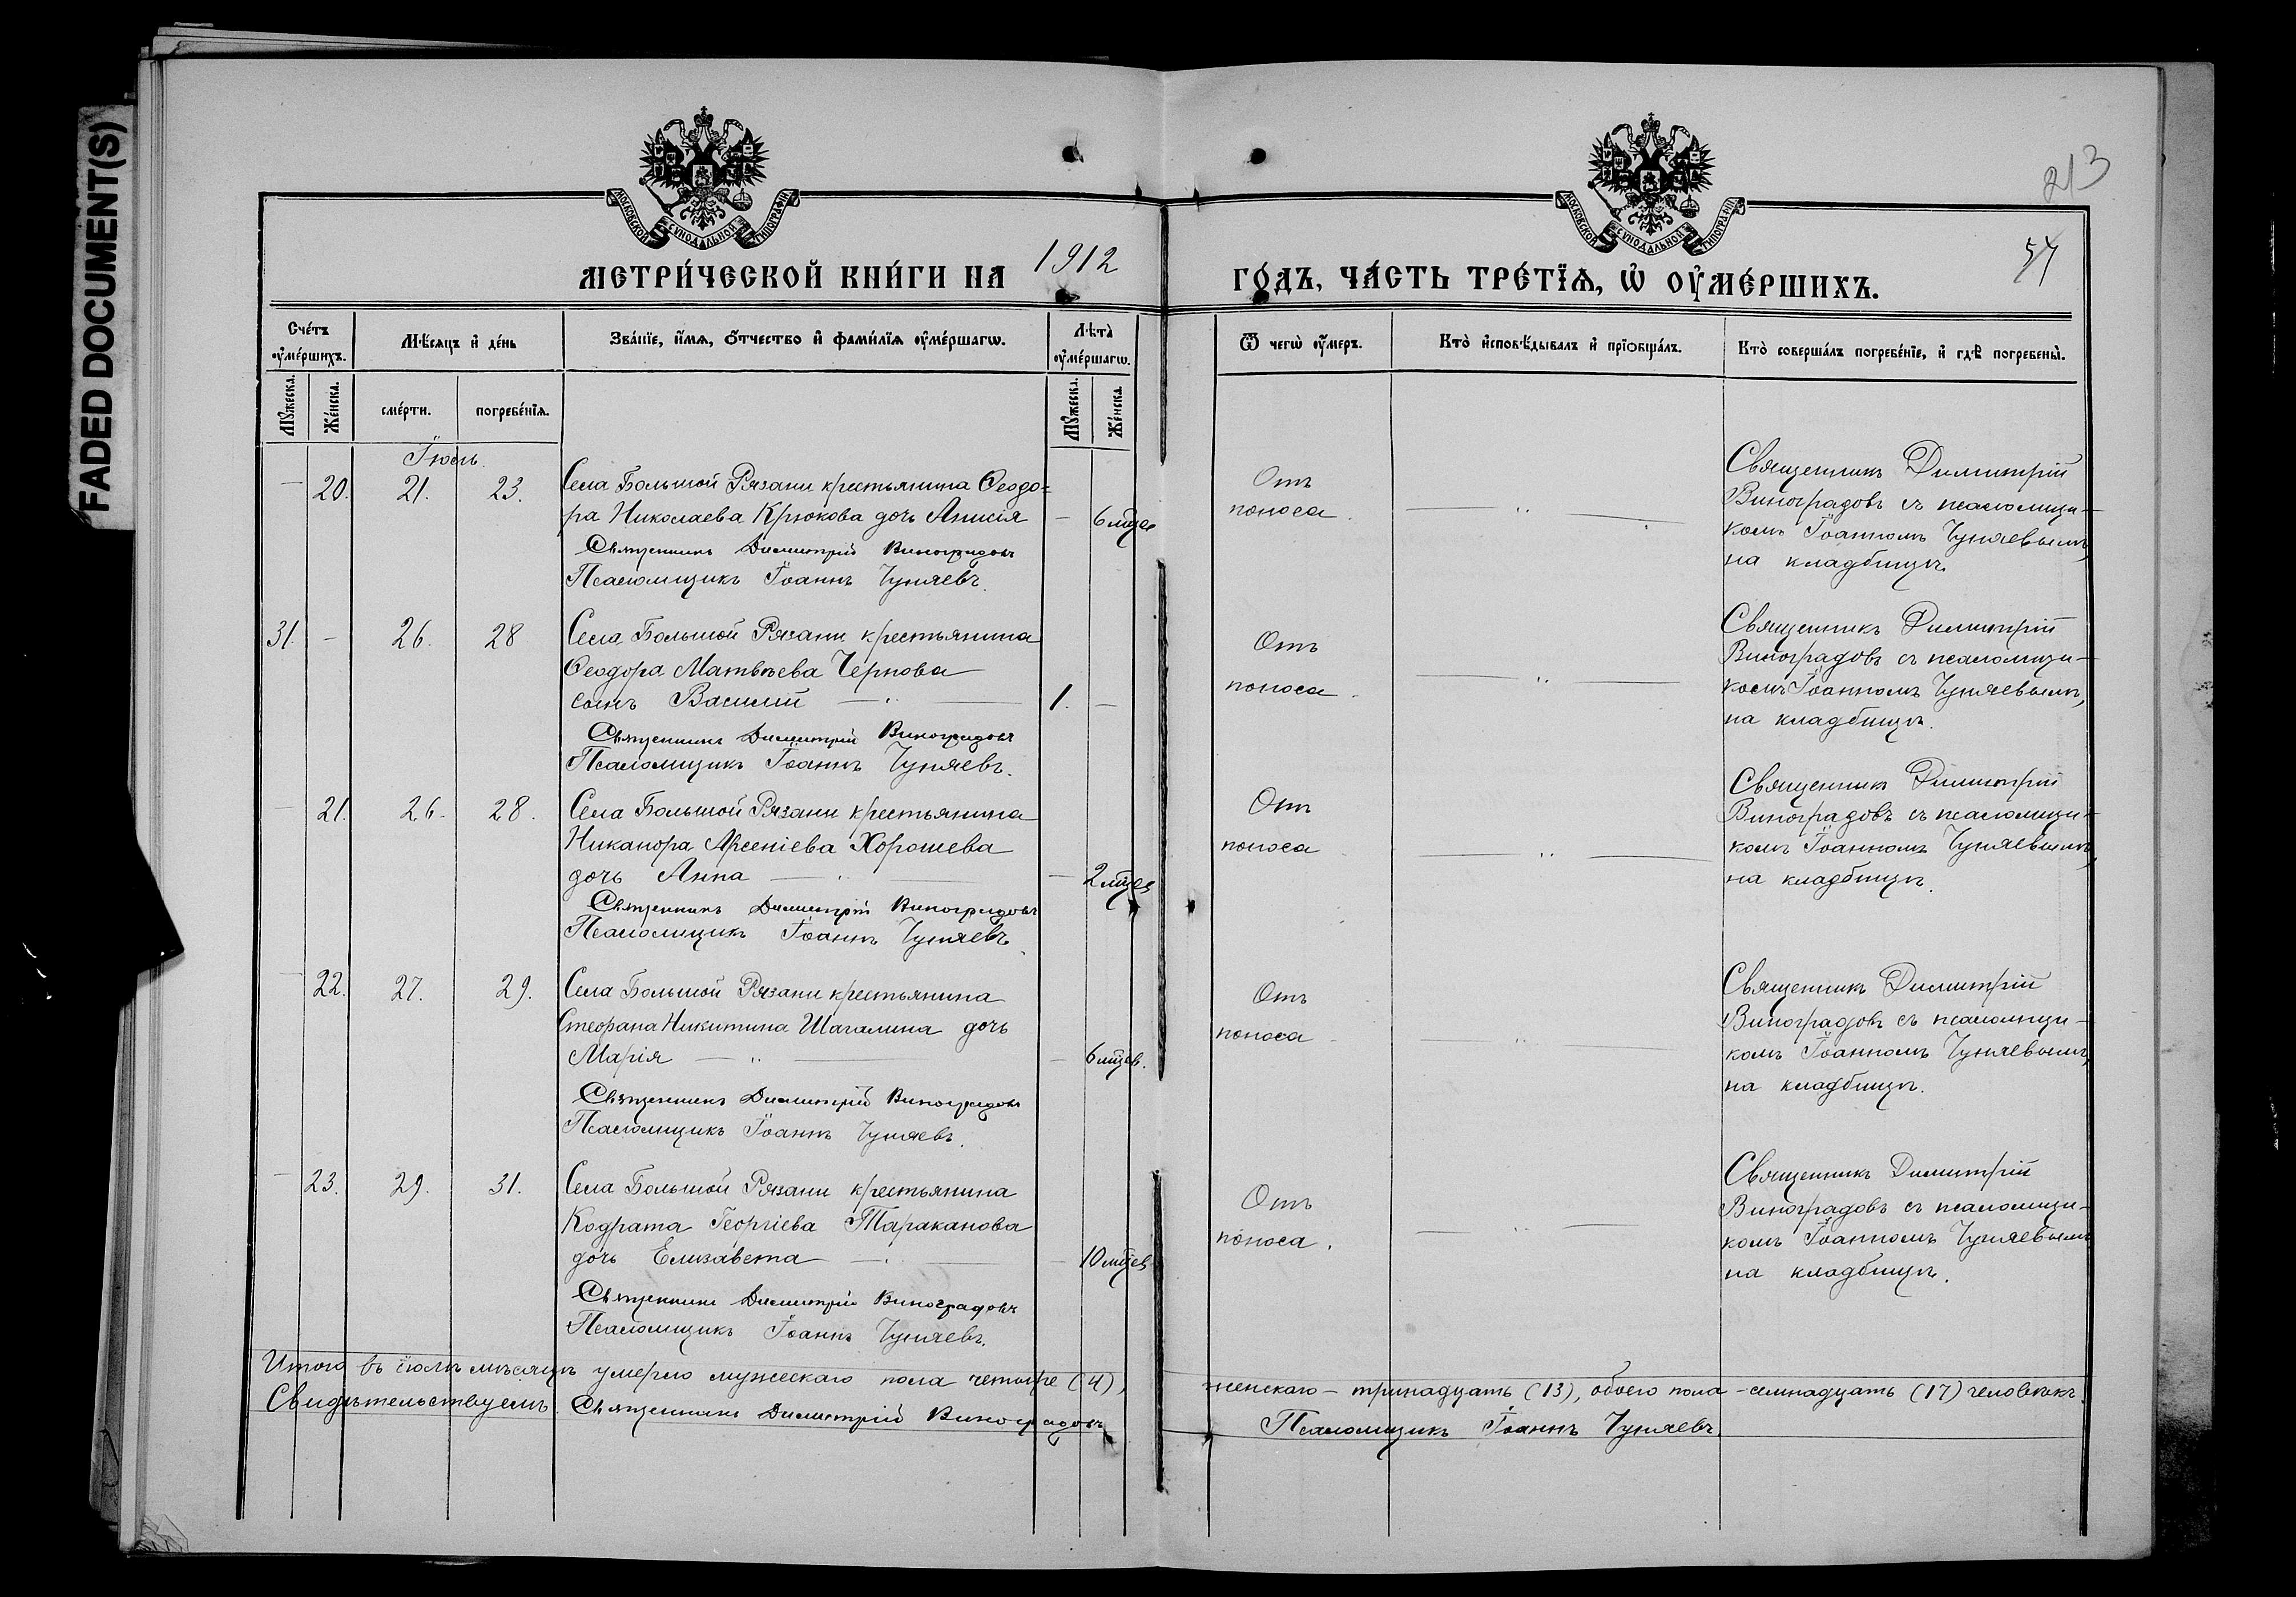 FADED DOCUMENT(S)
МОСКОВСКОЙ СѴНОДАЛЬНОЙ ТИПОГРАФІИ
МОСКОВСКОЙ СѴНОДАЛЬНОЙ ТИПОГРАФІИ
213
57
МЕТРИ́ЧЕСКОЙ КНИ́ГИ НА 1912 ГО́ДЪ, ЧА́СТЬ ТРЕ́ТЇѦ, Ѡ҆ ОУ҆МЕ́РШИХЪ.
Сче́тъ оу҆ме́ршихъ.
Мѣ́сяцъ и҆ де́нь
Зва́нїе, и҆́мѧ, ѻ҆́тчество и҆ фами́лїѧ оу҆ме́ршагѡ.
Лѣта̀ оу҆ме́ршагѡ.
Ѿ чегѡ̀ оу҆́меръ.
Кто̀ и҆сповѣ́дывалъ и҆ прїѻбща́лъ.
Кто̀ соверша́лъ погребе́нїе, и҆ гдѣ̀ погребены̀.
Мꙋ́жеска.
Же́нска.
сме́рти.
погребе́нїѧ.
Мꙋ́жеска.
Же́нска.
Іюль.
— 20. 21. 23. Села Большой Рязани крестьянина Ѳеодо=
ра Николаева Крюкова дочь Анисія — 6 мцев
Священникъ Димитрій Виноградовъ
Псаломщикъ Іоаннъ Чуняевъ.
Отъ
поноса.
Священникъ Димитрій
Виноградовъ съ псаломщи-
комъ Іоанномъ Чуняевымъ,
на кладбищѣ.
31. — 26. 28 Села Большой Рязани крестьянина
Ѳеодора Матвѣева Чернова
сынъ Василій — 1. —
Священникъ Димитрій Виноградовъ
Псаломщикъ Іоаннъ Чуняевъ.
Отъ
поноса.
Священникъ Димитрій
Виноградовъ съ псаломщи-
комъ Іоанномъ Чуняевымъ,
на кладбищѣ.
— 21. 26. 28. Села Большой Рязани крестьянина
Никанора Арсеніева Хорошева
дочь Анна — 2 мцев
Священникъ Димитрій Виноградовъ
Псаломщикъ Іоаннъ Чуняевъ.
Отъ
поноса
Священникъ Димитрій
Виноградовъ съ псаломщи-
комъ Іоанномъ Чуняевымъ,
на кладбищѣ.
— 22. 27. 29. Села Большой Рязани крестьянина
Стефана Никитина Шагалина дочь
Марія — 6 мцев.
Священникъ Димитрій Виноградовъ
Псаломщикъ Іоаннъ Чуняевъ.
Отъ
поноса
Священникъ Димитрій
Виноградовъ съ псаломщи-
комъ Іоанномъ Чуняевымъ,
на кладбищѣ.
— 23. 29. 31. Села Большой Рязани крестьянина
Кодрата Георгіева Тараканова
дочь Елизавета — 10 мцев
Священникъ Димитрій Виноградовъ
Псаломщикъ Іоаннъ Чуняевъ.
Отъ
поноса.
Священникъ Димитрій
Виноградовъ съ псаломщи-
комъ Іоанномъ Чуняевымъ
на кладбищѣ.
Итого въ іюлѣ мѣсяцѣ умерло мужескаго пола четыре (4), женскаго — тринадцать (13), обоего пола — семнадцать (17) человѣкъ.
Свидѣтельствуемъ: Священникъ Димитрій Виноградовъ
Псаломщикъ Іоаннъ Чуняевъ.